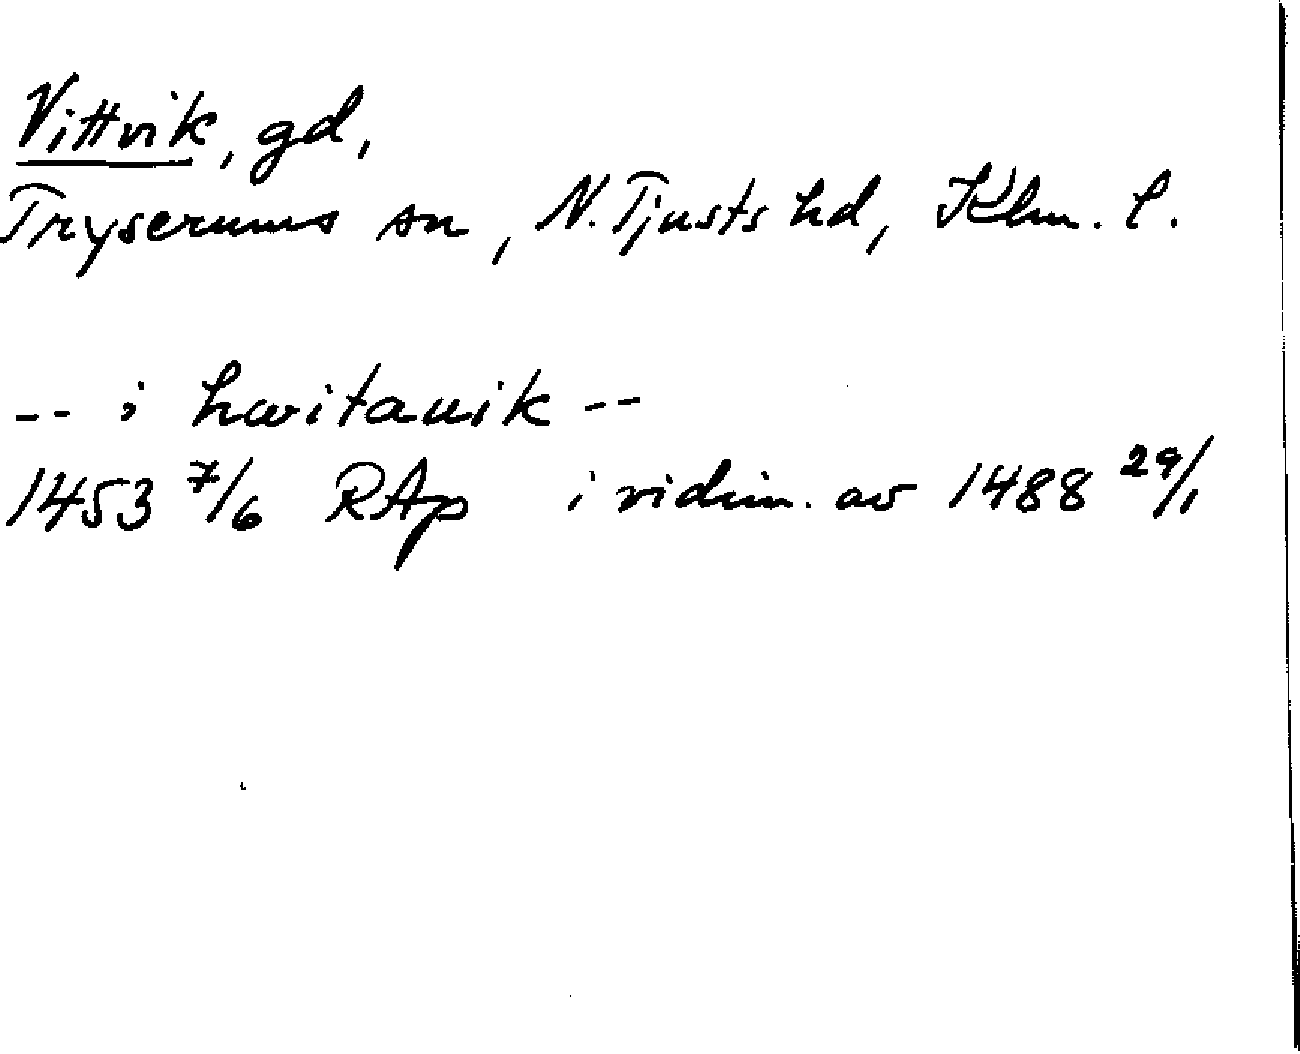 Vittvik, gd,
Tryserums sn, N. Tjusts hd, Klm. l.
-- i hwitauik --
1453 7/6 RAp i vidim. av 1488 29/1